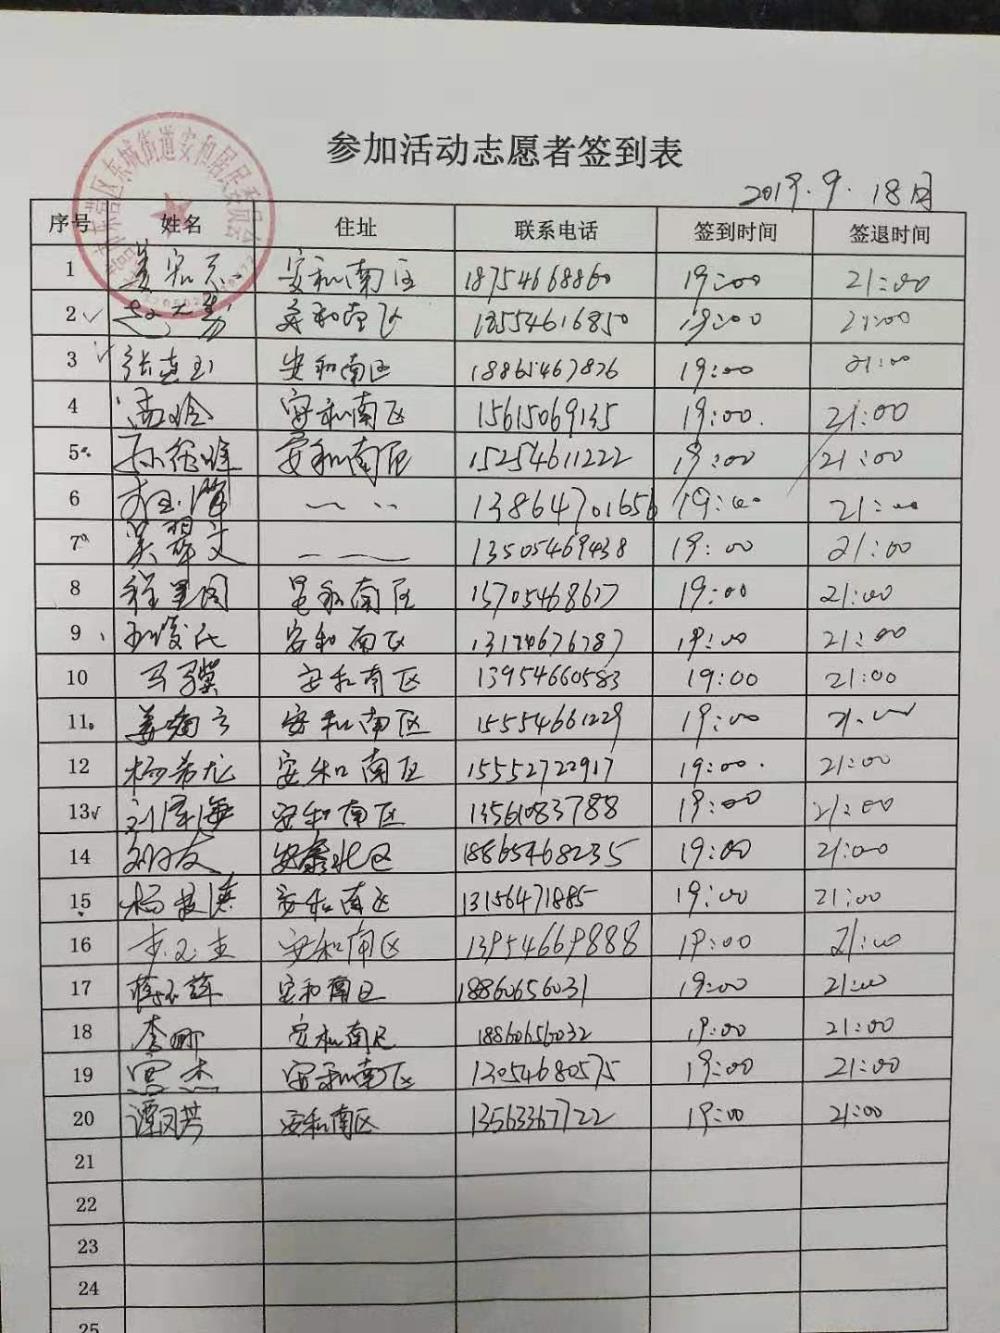 东城街道安和居民委员会
参加活动志愿者签到表
2019.9.18日
序号 姓名 住址 联系电话 签到时间 签退时间
1 安和南区 18754668860 19:00 21:00
2 安和南区 18554616850 19:00 21:00
3 张惠玉 安和南区 18861467826 19:00 21:00
4 孟玲 安和南区 15615069135 19:00. 21:00
5 安和南区 15254611222 19:00 21:00
6 13864701656 19:00 21:00
7 吴翠文 13505469438 19:00 21:00
8 程里国 安和南区 15705468617 19:00 21:00
9 安和南区 19:00 21:00
10 马骥 安和南区 13954660583 19:00 21:00
11 安和南区 15554661229 19:00 21:00
12 杨希龙 安和南区 15552722917 19:00. 21:00
13 刘军海 安和南区 13561083788 19:00 21:00
14 安泰北区 18865468235 19:00 21:00
15 安和南区 13156471885 19:00 21:00
16 李文杰 安和南区 13954669888 19:00 21:00
17 安和南区 18860656031 19:00 21:00
18 李娜 安和南区 18860656032 19:00 21:00
19 宫杰 安和南区 13054680575 19:00 21:00
20 谭凤芳 安和南区 13563367722 19:00 21:00
21
22
23
24
25